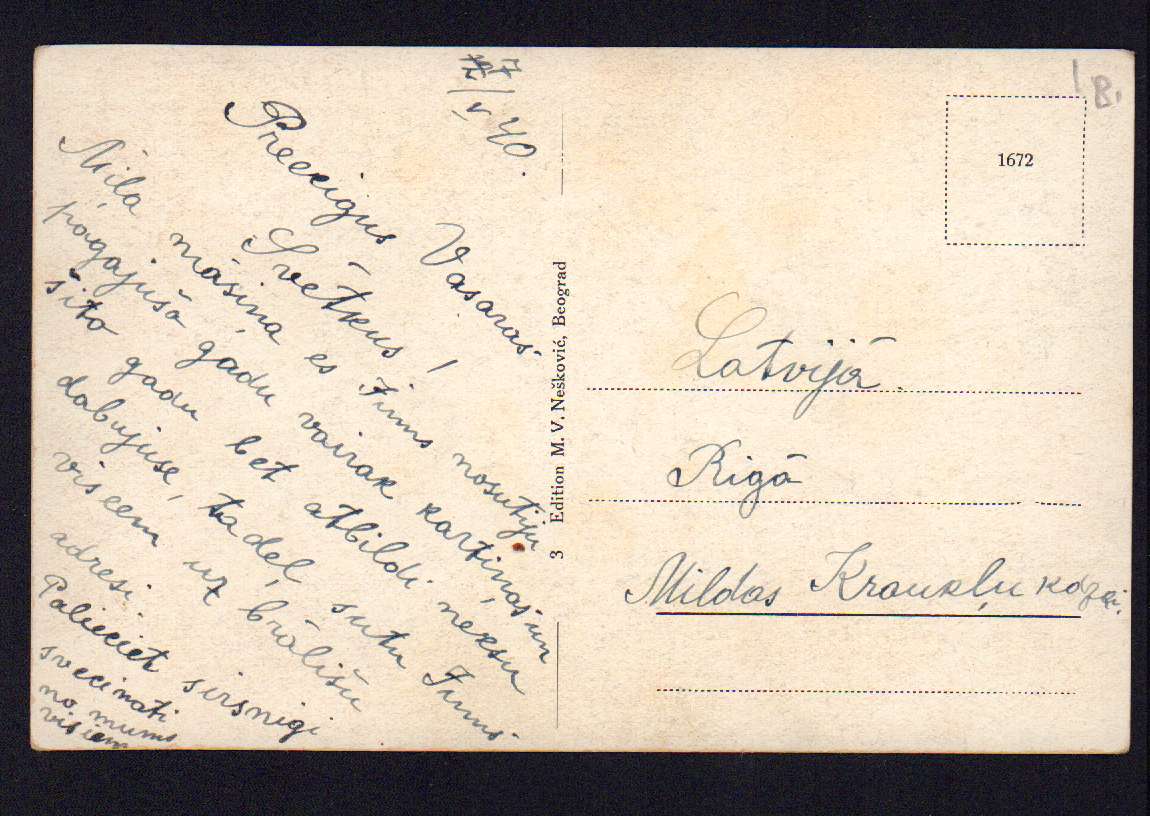 7
V 40.
Preecigus Vasaras
Svētkus!
Mīļa māsiņa es Jums nosutiju
pagajušo gadu vairak kartiņas un
šito gadu bet atbildi neesu
dabujuse, tadel sutu Jums
viseem uz brāļišu
adresi.
Palieciet sirsnigi
svecinati
no mums
visiem
3 Edition M. V. Nešković, Beograd
B.
1672
Latvijā
Rigā
Mildas Kraukļu